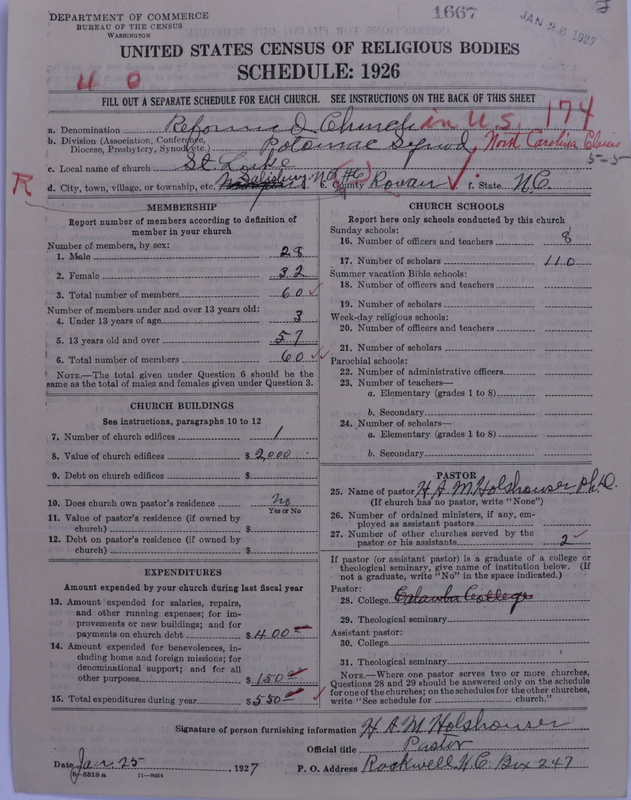 DEPARTMENT OF COMMERCE
BUREAU OF THE CENSUS
WASHINGTON
1667
JAN 26 1927
UNITED STATES CENSUS OF RELIGIOUS BODIES
SCHEDULE: 1926
4 0
FILL OUT A SEPARATE SCHEDULE FOR EACH CHURCH. SEE INSTRUCTIONS ON THE BACK OF THIS SHEET
a. Denomination Reformed Church in U.S. 174
b. Division (Association, Conference, Diocese, Presbytery, Synod, etc.) Potomac Synod, North Carolina Classis
5-5
c. Local name of church St Luke
R d. City, town, village, or township, etc. Salisbury N.C. County Rowan f. State N.C.
MEMBERSHIP
Report number of members according to definition of member in your church
Number of members, by sex:
1. Male 28
2. Female 32
3. Total number of members 60
Number of members under and over 13 years old:
4. Under 13 years of age 3
5. 13 years old and over 57
6. Total number of members 60
NOTE.—The total given under Question 6 should be the same as the total of males and females given under Question 3.
CHURCH BUILDINGS
See instructions, paragraphs 10 to 12
7. Number of church edifices 1
8. Value of church edifices $ 2,000
9. Debt on church edifices $
10. Does church own pastor's residence No
Yes or No
11. Value of pastor's residence (if owned by church) $
12. Debt on pastor's residence (if owned by church) $
EXPENDITURES
Amount expended by your church during last fiscal year
13. Amount expended for salaries, repairs, and other running expenses; for improvements or new buildings; and for payments on church debt $ 400
14. Amount expended for benevolences, including home and foreign missions; for denominational support; and for all other purposes $ 150
15. Total expenditures during year $ 550
CHURCH SCHOOLS
Report here only schools conducted by this church
Sunday schools:
16. Number of officers and teachers 8
17. Number of scholars 110
Summer vacation Bible schools:
18. Number of officers and teachers
19. Number of scholars
Week-day religious schools:
20. Number of officers and teachers
21. Number of scholars
Parochial schools:
22. Number of administrative officers
23. Number of teachers—
a. Elementary (grades 1 to 8)
b. Secondary
24. Number of scholars—
a. Elementary (grades 1 to 8)
b. Secondary
PASTOR
25. Name of pastor H A M Holshouser, Ph.D.
(If church has no pastor, write "None")
26. Number of ordained ministers, if any, employed as assistant pastors
27. Number of other churches served by the pastor or his assistants 2
If pastor (or assistant pastor) is a graduate of a college or theological seminary, give name of institution below. (If not a graduate, write "No" in the space indicated.)
Pastor:
28. College Catawba College
29. Theological seminary
Assistant pastor:
30. College
31. Theological seminary
NOTE.—Where one pastor serves two or more churches, Questions 28 and 29 should be answered only on the schedule for one of the churches; on the schedules for the other churches, write "See schedule for church."
Signature of person furnishing information H A M Holshouser
Official title Pastor
Date Jan. 25, 1927 P. O. Address Rockwell N.C. Box 247
8-5518 a 11-9054